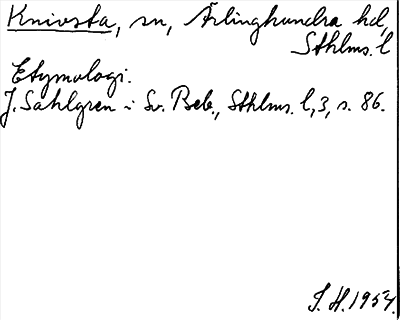 Knivsta, sn, Ärlinghundra hd,
Sthlms. l
Etymologi.
J. Sahlgren i Sv. Beb., Sthlms. l, 3, s. 86.
S. H. 1954.